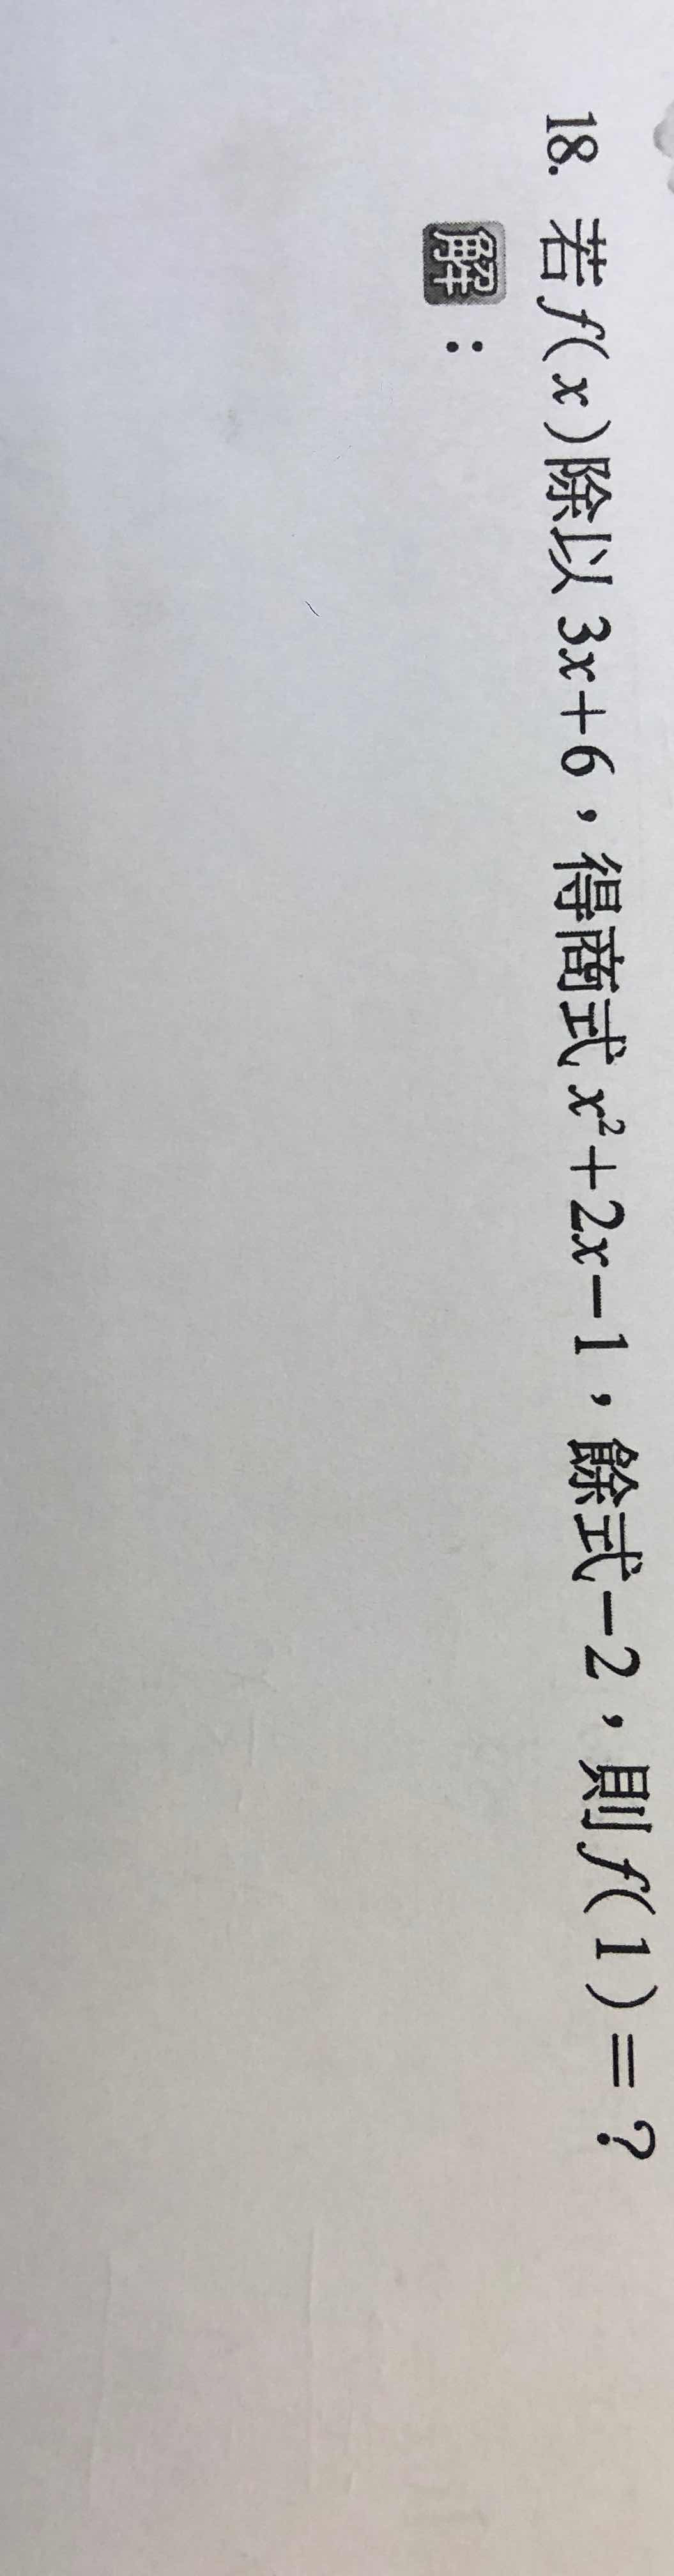 18. 若f(x)除以3x+6，得商式x²+2x-1，餘式-2，則f(1)=？
解：